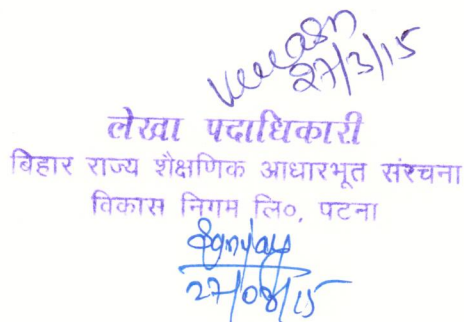 27/3/15
लेखा पदाधिकारी
बिहार राज्य शैक्षणिक आधारभूत संरचना
विकास निगम लि०, पटना
Sanjay
27/03/15